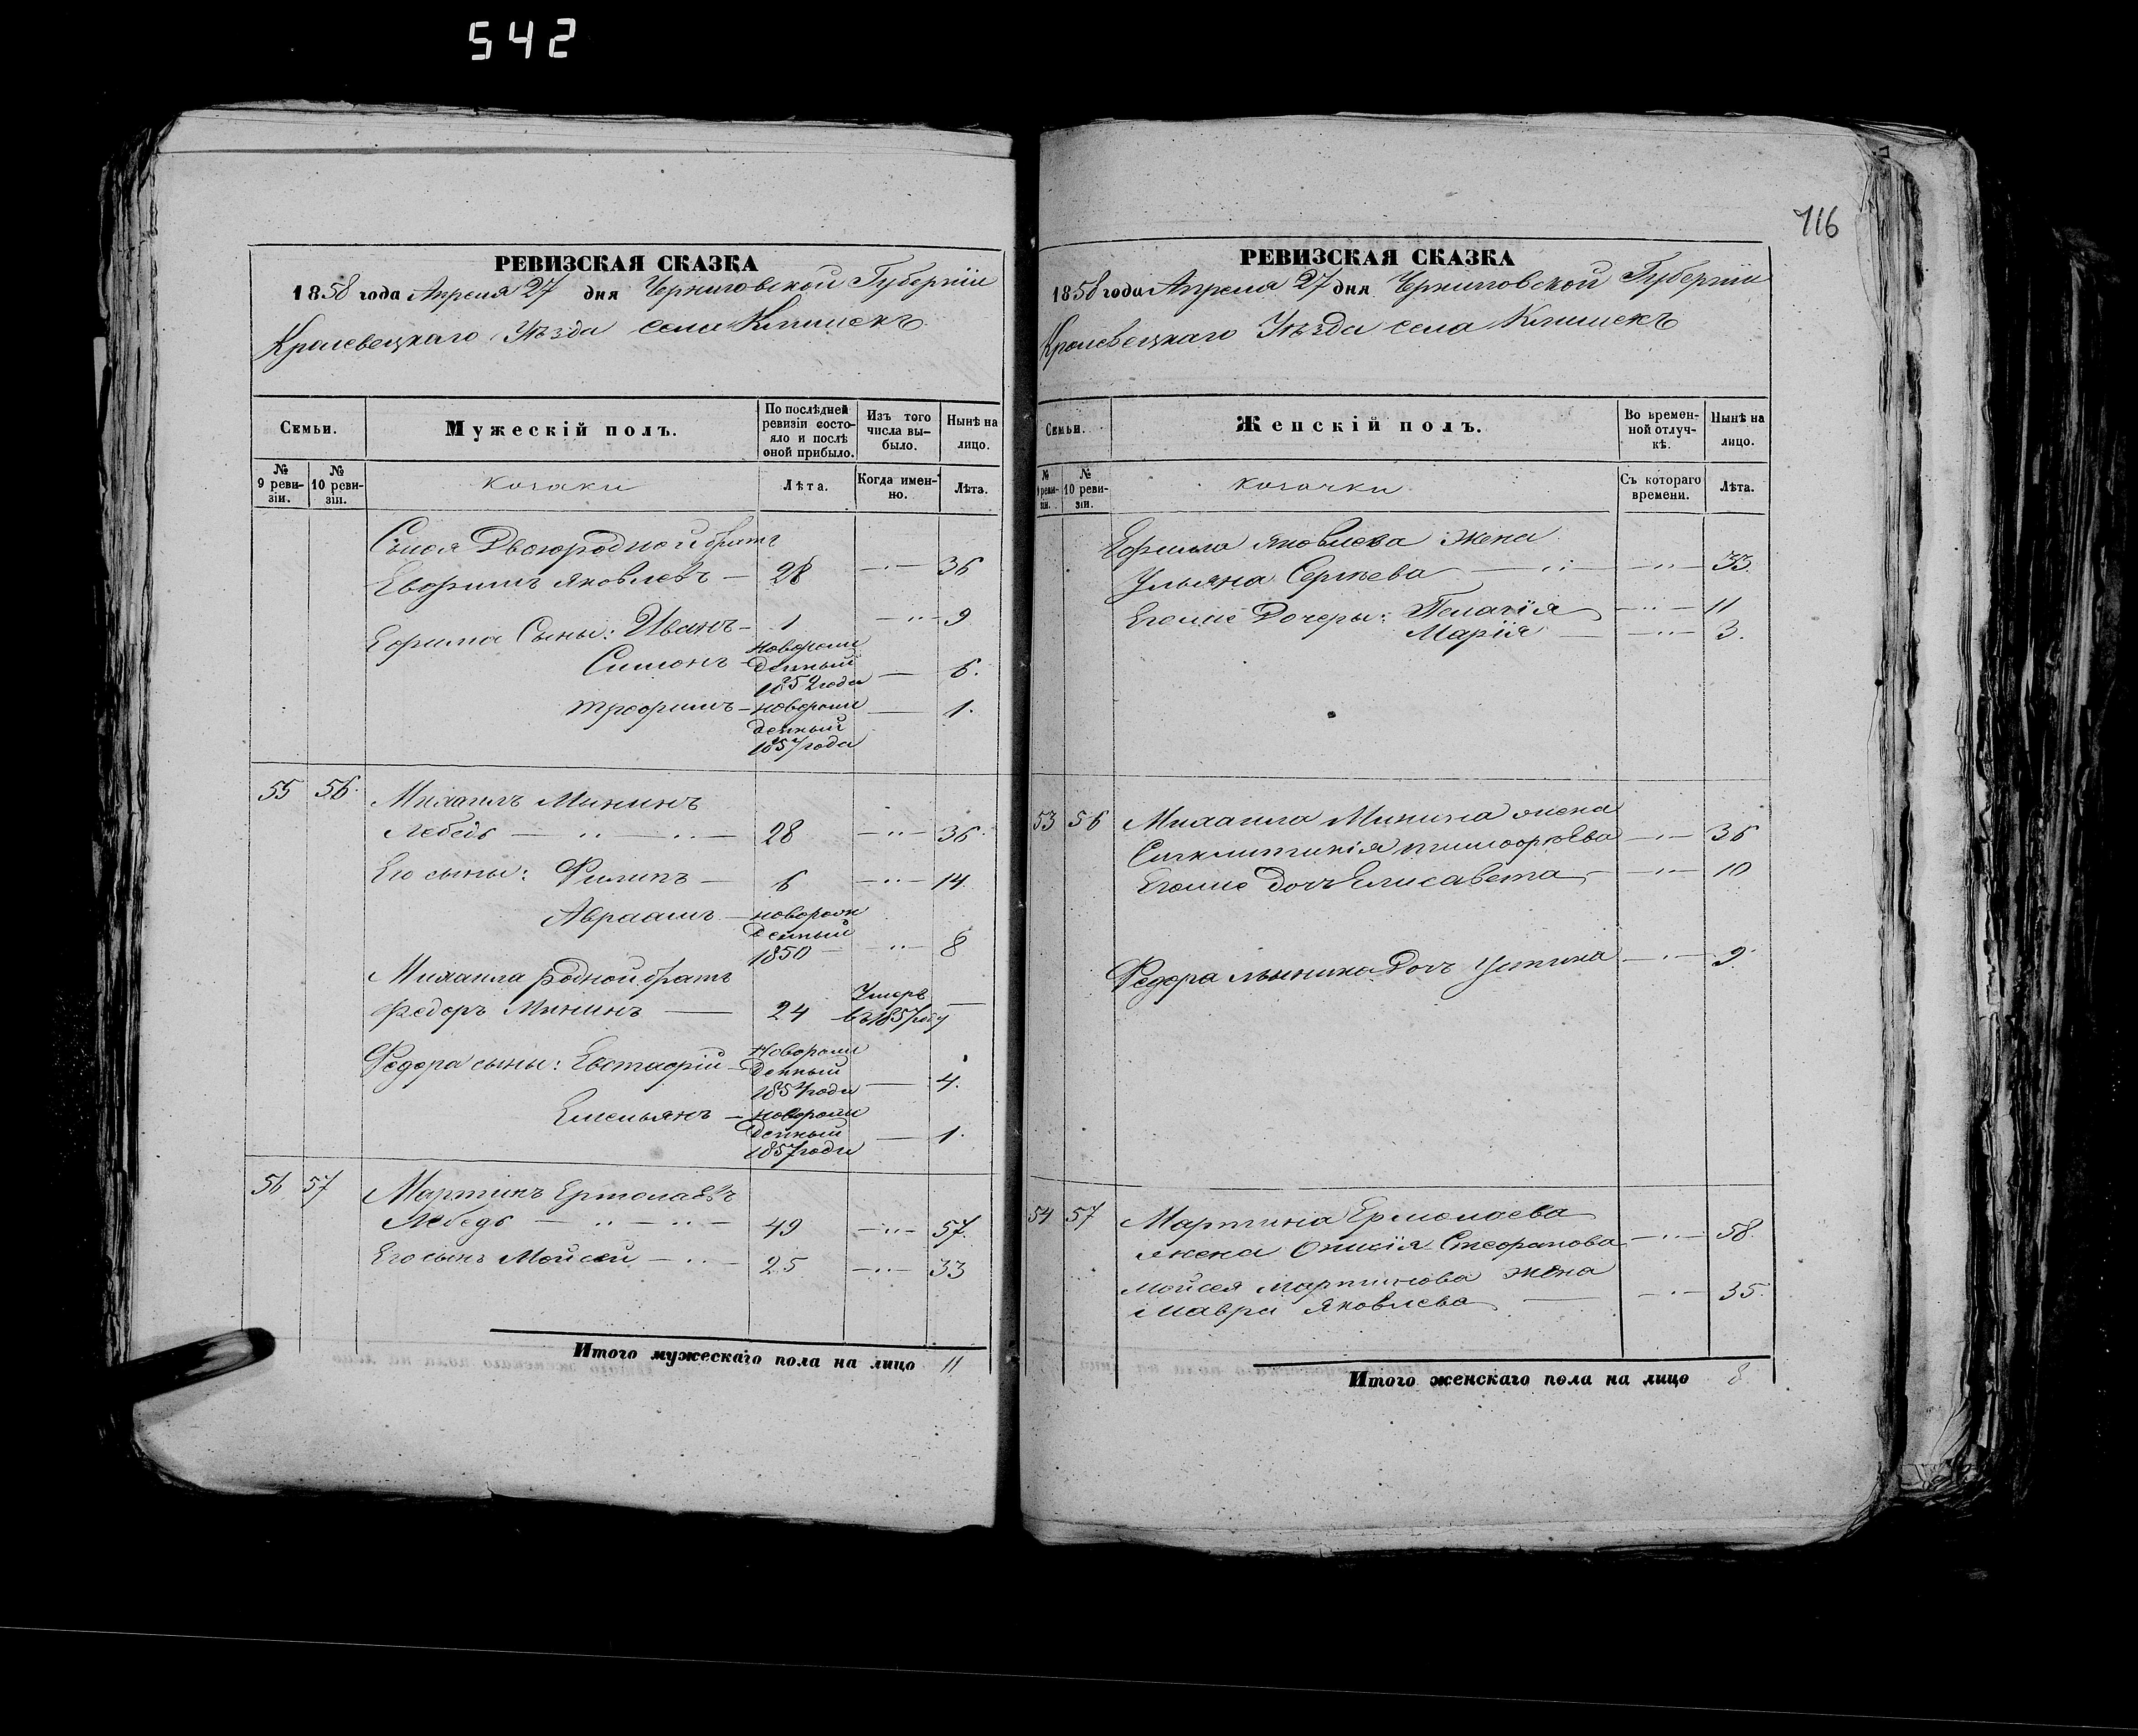 542
РЕВИЗСКАЯ СКАЗКА
1858 года Апреля 27 дня Черниговской Губерніи
Кролевецкаго Уѣзда села Клишекъ
Семьи.
Мужескій полъ.
По послѣдней ревизіи состояло и послѣ оной прибыло.
Изъ того числа выбыло.
Нынѣ на лицо.
№ 9 ревизіи.
№ 10 ревизіи.
козаки
Лѣта.
Когда именно.
Лѣта.
Двоюродной братъ
Евфимъ Яковлевъ — 28 —„— 36
Ефима Сыны: Иванъ — 1 —„— 9
Симонъ новорожденный 1852 года — 6.
Трофимъ — новорожденный 1857 года — 1.
55 56. Михаилъ Мининъ
Лебедь — „ — „ — 28 —„— 36.
Его сыны: Филипъ — 6 —„— 14
Авраамъ — новорожденный 1850 — —„— 8
Михаила родной братъ
Федоръ Мининъ — 24 Умеръ въ 1857 году —
Федора сыны: Евстафій — Новорожденный 1854 года — 4.
Емельянъ — новорожденный 1857 года — 1.
56 57 Мартинъ Ермолаевъ
Лебедь — „ — „ — 49 —„— 57.
Его сынъ Мойсей — „ — 25 —„— 33
Итого мужескаго пола на лицо 11
716
РЕВИЗСКАЯ СКАЗКА
1858 года Апреля 27 дня Черниговской Губерніи
Кролевецкаго Уѣзда села Клишекъ
Семьи.
Женскій полъ.
Во временной отлучкѣ.
Нынѣ на лицо.
№ 9 ревизіи.
№ 10 ревизіи.
козачки
Съ котораго времени.
Лѣта.
Ефима Яковлева жена
Ульяна Сергѣева — „ — —„— 33.
Егоже Дочеры: Пелагія —„— 11
Марія — —„— 3.
53 56 Михаила Минина жена
Сигклитикія Тимофѣева —„— 36
Егоже дочь Елисавета —„— 10
Федора Минина Дочь Устина —„— 9.
54 57 Мартина Ермолаева
жена Стефанова —„— 58.
Мойсея Мартинова жена
Мавра Яковлева — —„— 35.
Итого женскаго пола на лицо 8